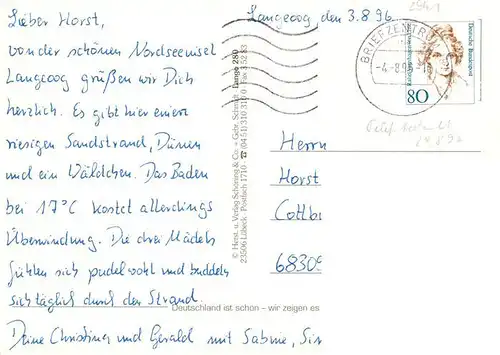 Lieber Horst,
von der schönen Nordseeinsel
Langeoog grüßen wir Dich
herzlich. Es gibt hier einen
riesigen Sandstrand, Dünen
und ein Wäldchen. Das Baden
bei 17°C kostet allerdings
Überwindung. Die drei Mädels
fühlen sich pudelwohl und buddeln
sich täglich durch den Strand.
Deine Christina und Gerald mit Sabine, Sin
Langeoog, den 3.8.96
BRIEFZENTRUM
-4.-8.96
Deutsche Bundespost
80
© Herst. u. Verlag Schöning & Co. + Gebr. Schmidt
23506 Lübeck · Postfach 1710 · ☎ (04 51) 310 31 20 · Fax 3 52 83
Lange 280
Herrn
Horst
Cottbu
68309
Deutschland ist schön – wir zeigen es